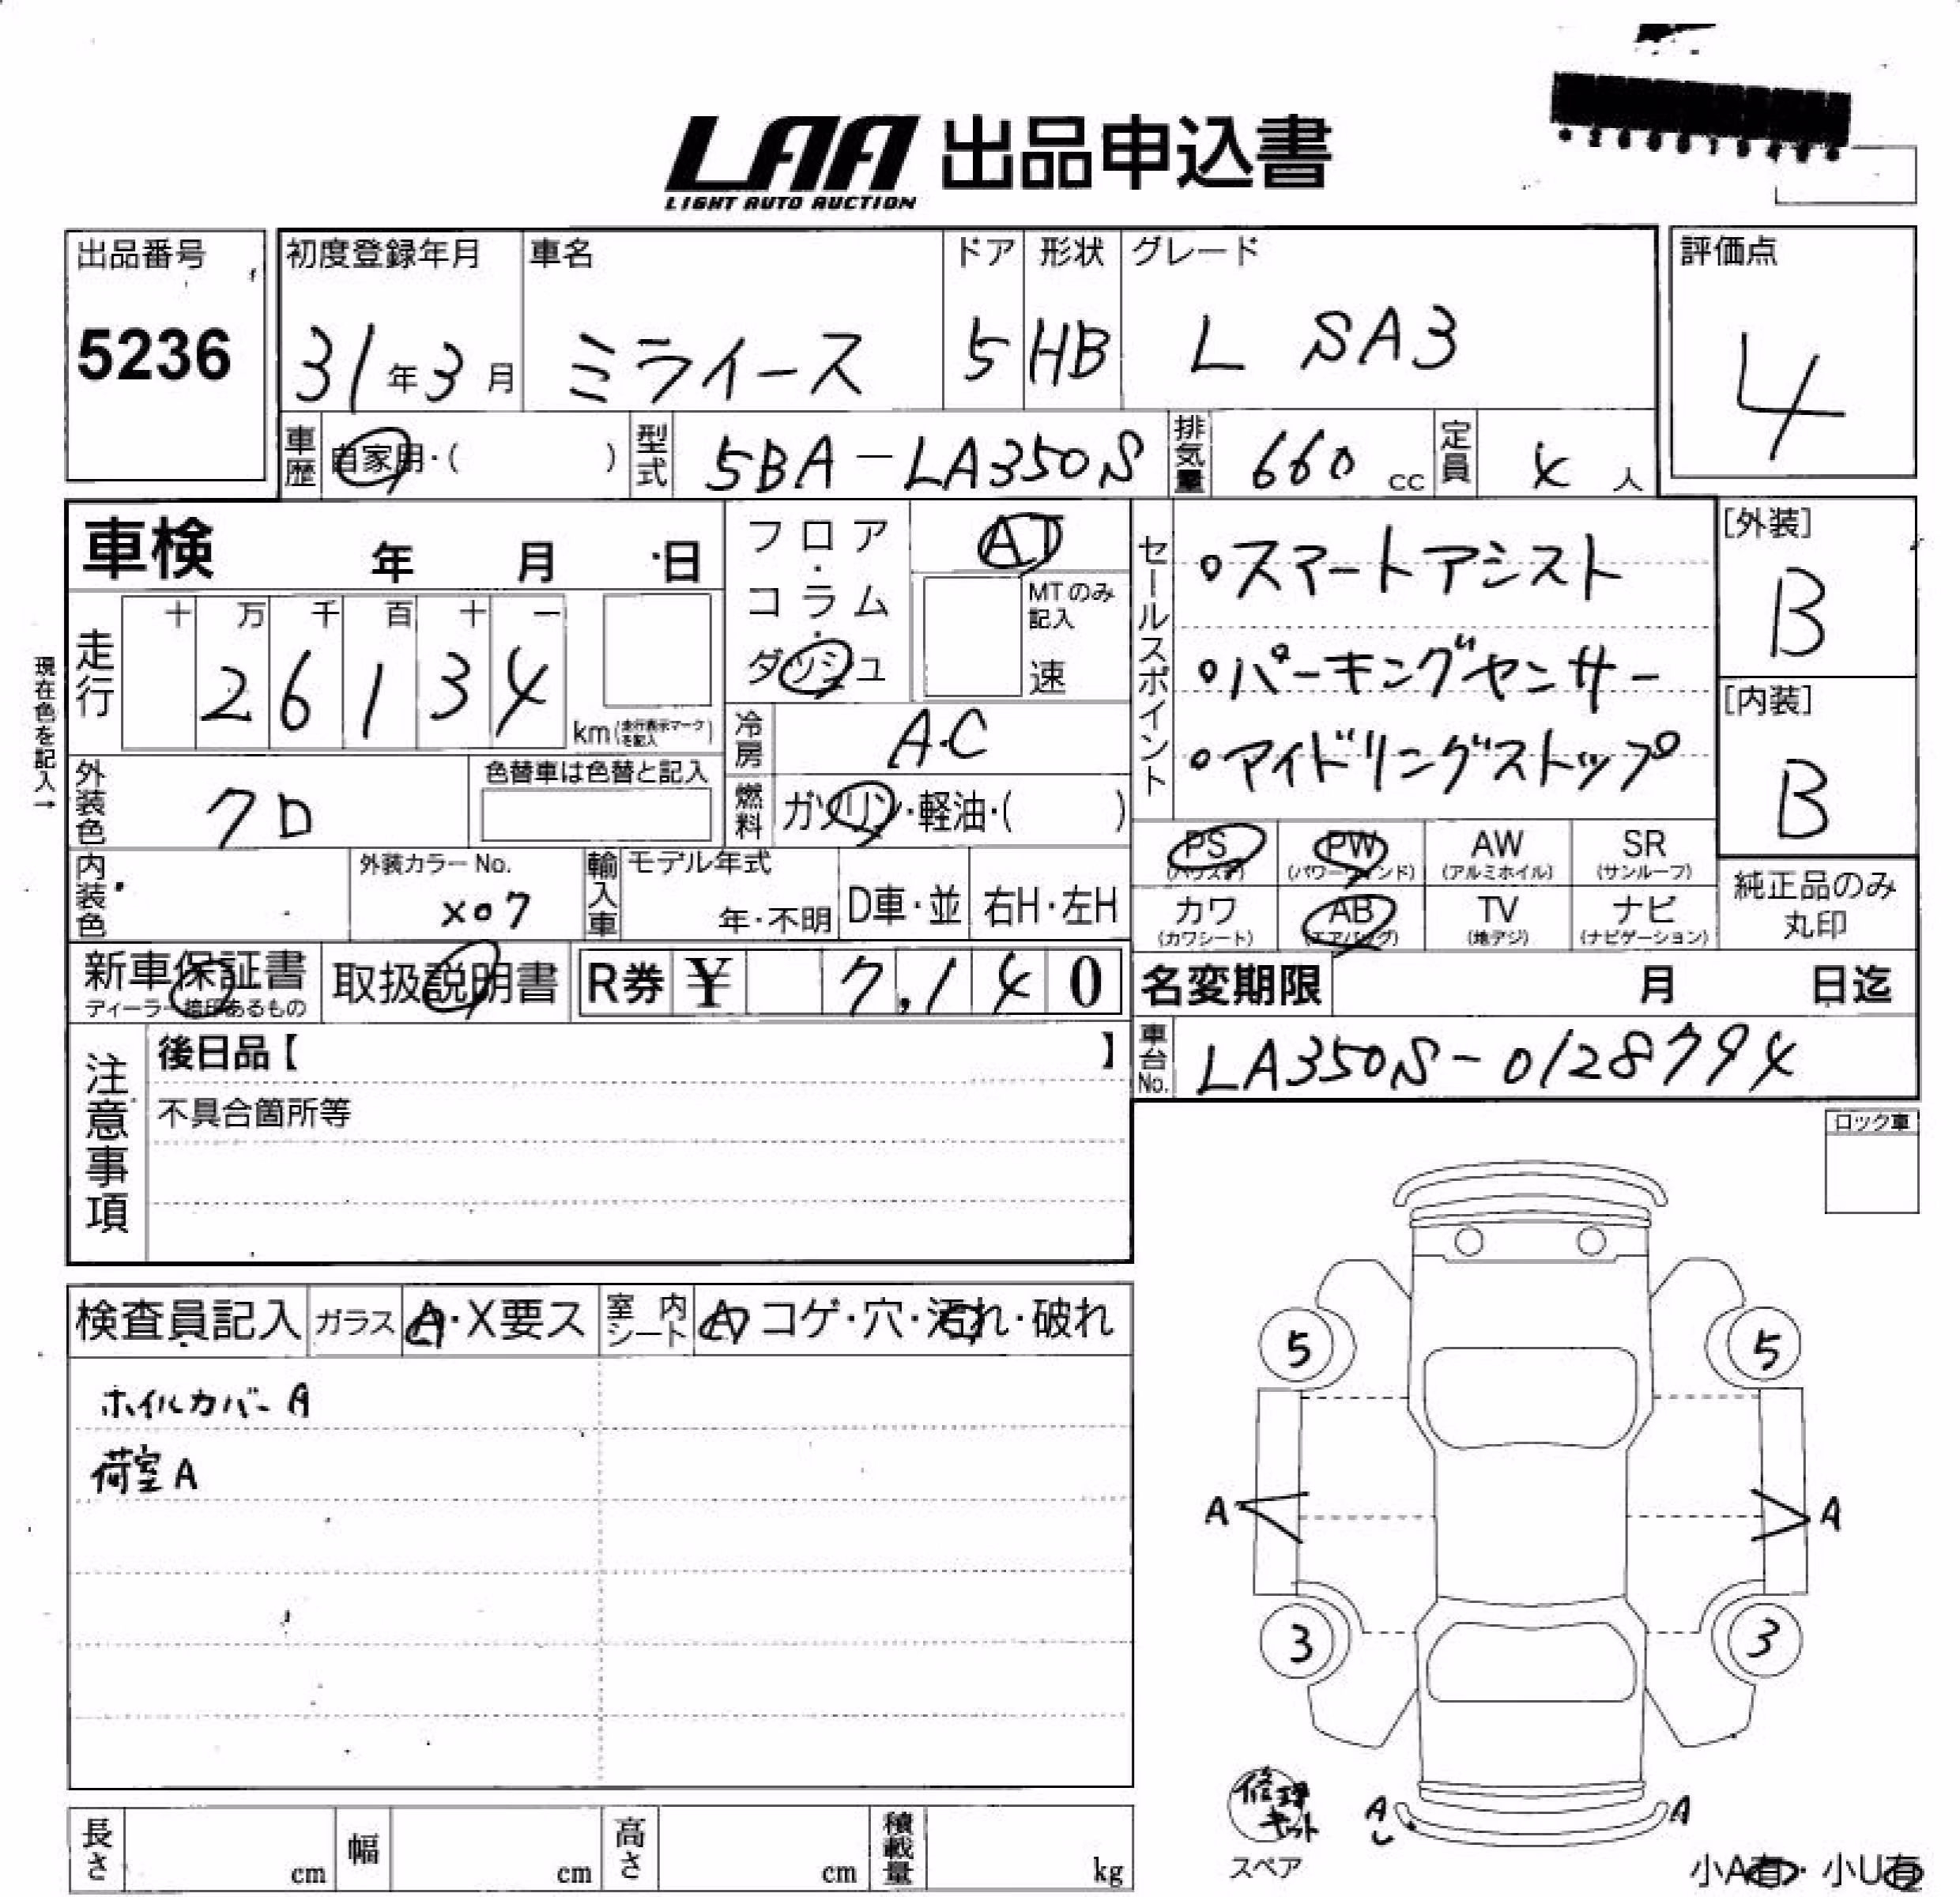 LAA 出品申込書
LIGHT AUTO AUCTION
出品番号
5236
初度登録年月
31年3月
車名
ミライース
ドア
5
形状
HB
グレード
L SA3
評価点
4
車歴
自家用・( )
型式
5BA-LA350S
排気量
660 cc
定員
4 人
車検 年 月 日
フロア・コラム・ダッシュ
AT
MTのみ記入
速
セールスポイント
・スマートアシスト
・パーキングセンサー
・アイドリングストップ
[外装]
B
[内装]
B
現在色を記入→
走行
十 万 千 百 十 一
2 6 1 3 4
km(走行表示マークを記入)
冷房
A.C
外装色
クロ
色替車は色替と記入
燃料
ガソリン・軽油・( )
PS
(パワステ)
PW
(パワーウィンド)
AW
(アルミホイル)
SR
(サンルーフ)
カワ
(カワシート)
AB
(エアバッグ)
TV
(地デジ)
ナビ
(ナビゲーション)
純正品のみ
丸印
内装色
外装カラーNo.
X07
輸入車
モデル年式
年・不明
D車・並
右H・左H
新車保証書
ディーラー捺印あるもの
取扱説明書
R券 ¥ 7,140
名変期限 月 日迄
車台No.
LA350S-0128794
注意事項
後日品【 】
不具合箇所等
ロック車
検査員記入
ガラス
A・X要ス
室内シート
A コゲ・穴・汚れ・破れ
ホイルカバーA
荷室A
5 5
A A
3 3
修理
キット
スペア
A A
し
小A有・小U有
長さ cm
幅 cm
高さ cm
積載量 kg